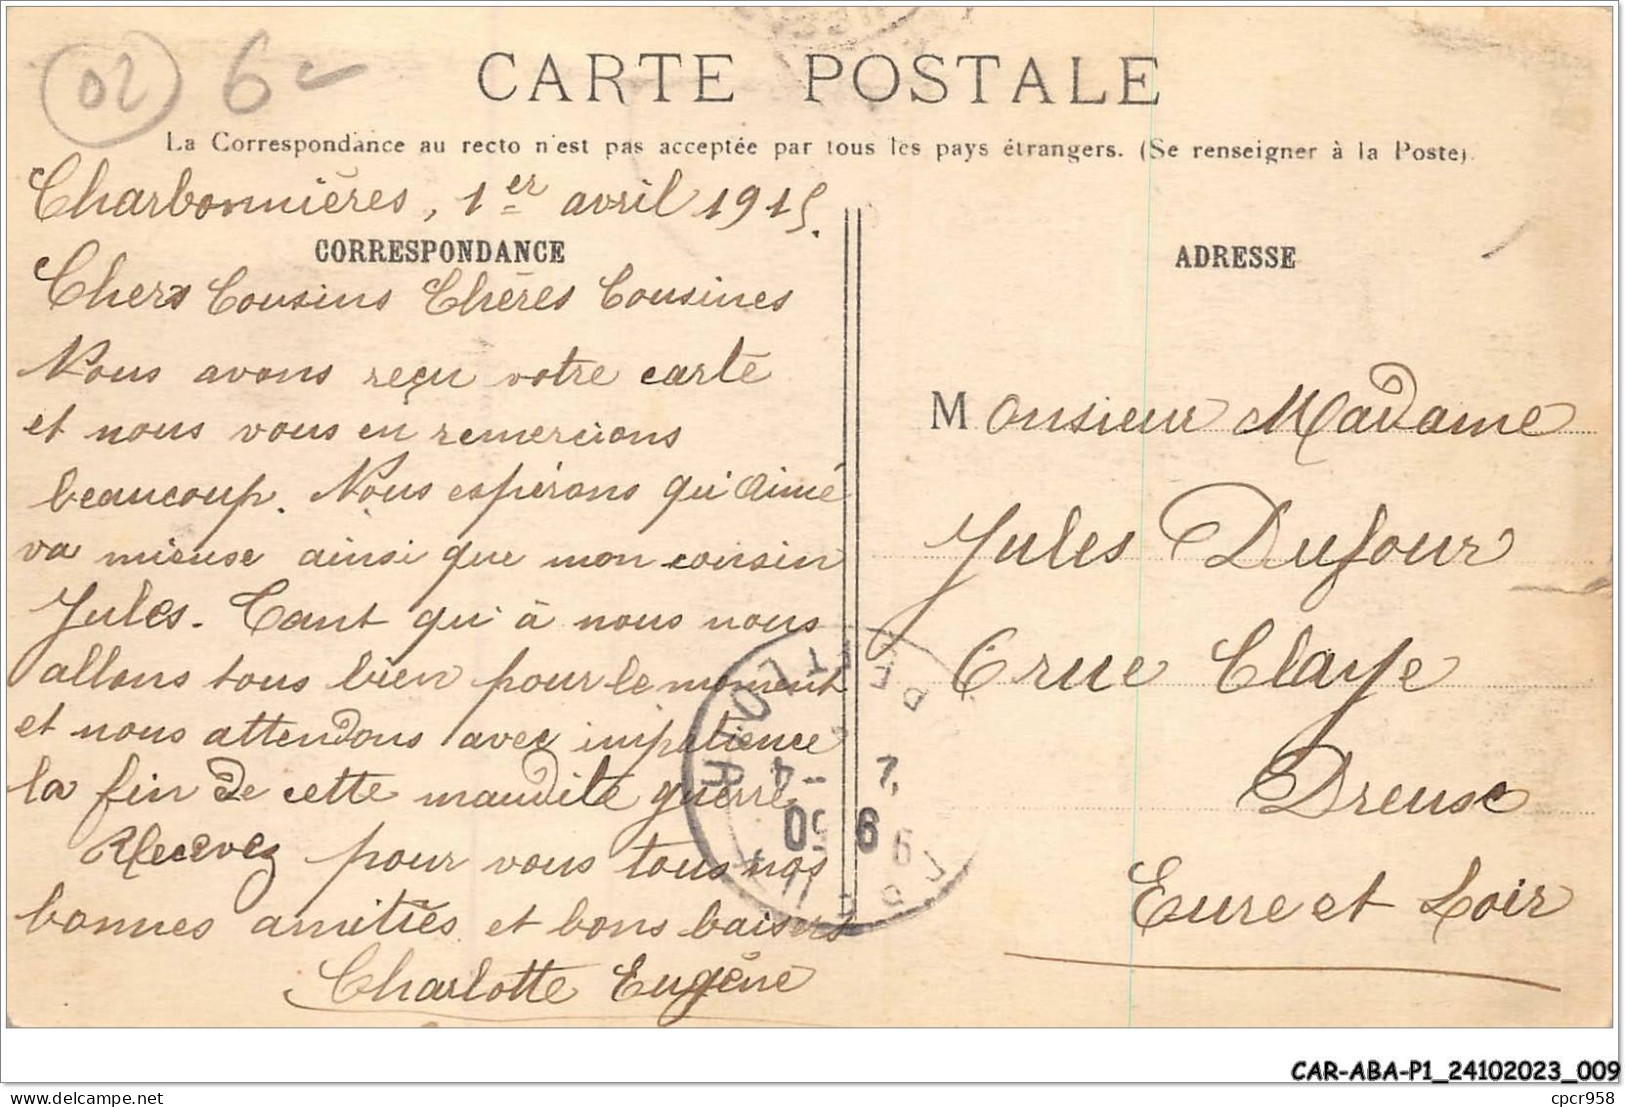 02 6
CARTE POSTALE
La Correspondance au recto n'est pas acceptée par tous les pays étrangers. (Se renseigner à la Poste).
Charbonnières, 1er avril 1915.
CORRESPONDANCE
Chers Cousins Chères Cousines
Nous avons reçu votre carte
et nous vous en remercions
beaucoup. Nous espérons qu'Aimé
va mieuse ainsi que mon cousin
Jules. Tant qu'à nous nous
allons tous bien pour le moment
et nous attendons avec impatience
la fin de cette maudite guerre
Recevez pour vous tous nos
bonnes amitiés et bons baisers
Charlotte Eugène
ADRESSE
Monsieur Madame
Jules Dufour
6 rue Claye
Dreuse
Eure et Loir
CAR-ABA-P1_24102023_009
cpcr958